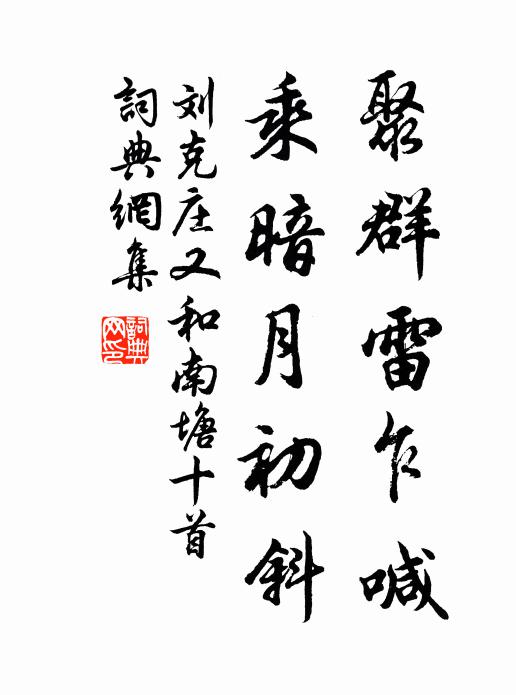 聚群雷乍喊
乘暗月初斜
刘克庄又和南塘十首
詞典網集
詞典网印